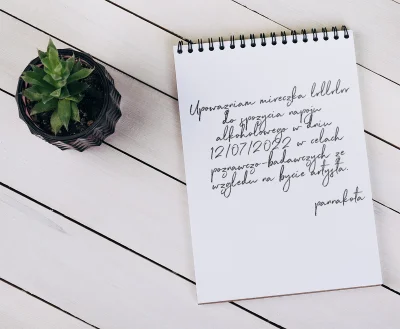 Upoważniam mireczka lollolxx
do spożycia napoju
alkoholowego w dniu
12/07/2022 w celach
poznawczo-badawczych ze
względu na bycie artystą.
pannakota